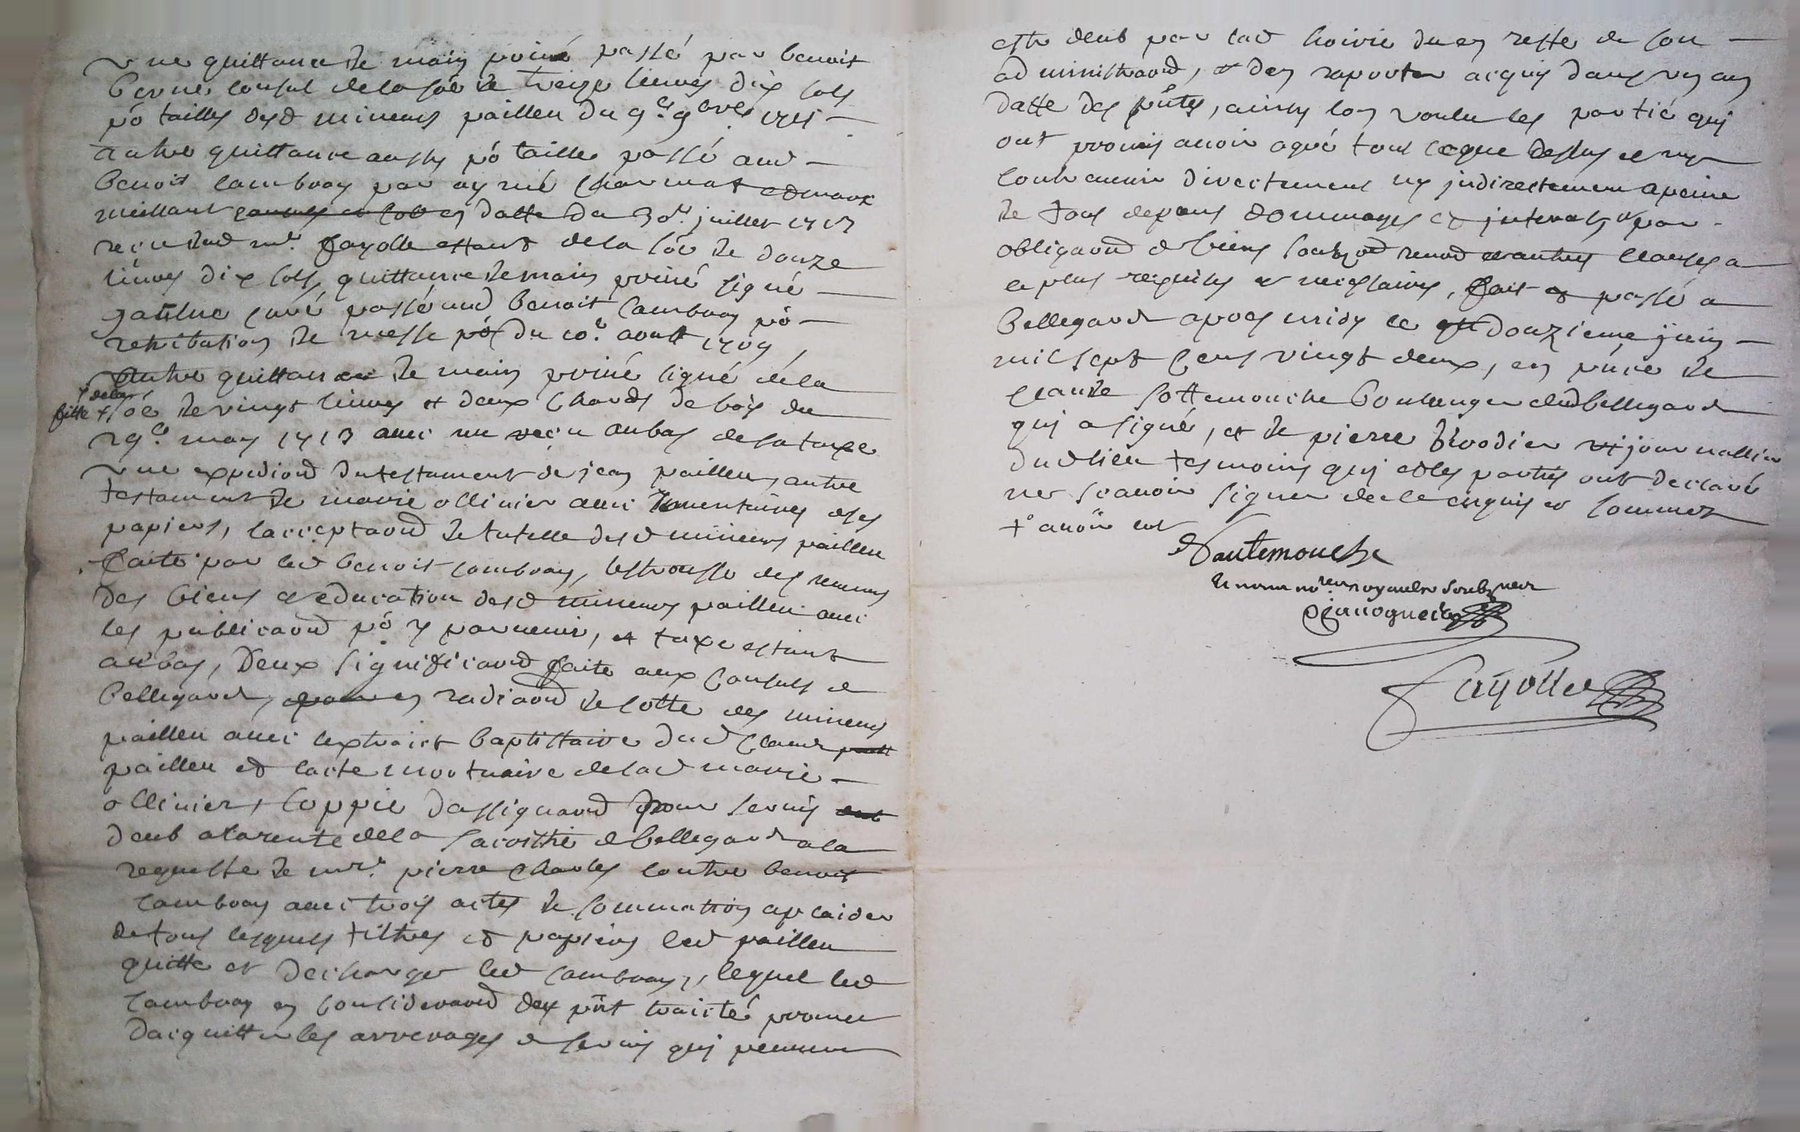 une quittance de main privé passé par benoit
consul de la soe de treize livres dix sols
po tailles desd mineurs pailleu du
autre quittance aussy po taille passé aud
benoit cambray par aymé
en datte du 30e juillet 1713
reçu dud mr. fayolle de la soe de douze
livres dix sols, quittance de main privé signé
curé passé aud benoit cambray po
retribution de messe du 10e aoust 1709,
autre quittance de main privé signé de la
fitte
soe de vingt livres et deux chards de bois du
29e may 1713 avec un reçu au bas de la taxe
une expediaond du testament de jean pailleu, autre
testament de marie ollinier avec inventaires des
papiers, l'acceptaond de tutelle desd mineurs pailleu
faite par led benoit cambray, lestrousse des
des biens et education desd mineurs pailleu avec
les publicaond po y parvenir, et taxe estant
au bas, deux significaond faite aux consuls de
bellegarde, en radiaond de cotte des mineurs
pailleu avec lextrait baptistaire dud claude
pailleu et lacte mortuaire de lad marie
ollinier, coppie dassignaond pour servis
deub a la rente de la de bellegarde a la
requeste de mre. pierre charles contre benoit
cambray avec trois actes de sommation
de tous lesquels tiltres et papiers led pailleu
quitte et decharge led cambray, lequel led
cambray en consideraond des pnt traicté promet
dacquitter les arrerages de servis qui peuvent
estre deub par lad hoirie du reste de son
administraond, et den raporter acquis dans un an
datte des pntes, ainsy lon voulu les partie qui
ont promis avoir agré tout ceque dessus et ny
contrevenir directement ny indirectement a peine
de tous depans dommages et interests par
obligaond de biens soubz od renond clauses a
ce plus requises et necessaires, fait et passé a
bellegarde apres midy le douzieme juin
mil sept cens vingt deux, en pnce de
claude sottemouche boulenger dud bellegarde
qui a signé, et de pierre brodier journallier
dud lieu tesmoins qui et les parties ont declaré
ne scavoir signer de ce enquis et sommez
Sautemouche
royaulx soubz
fayolle